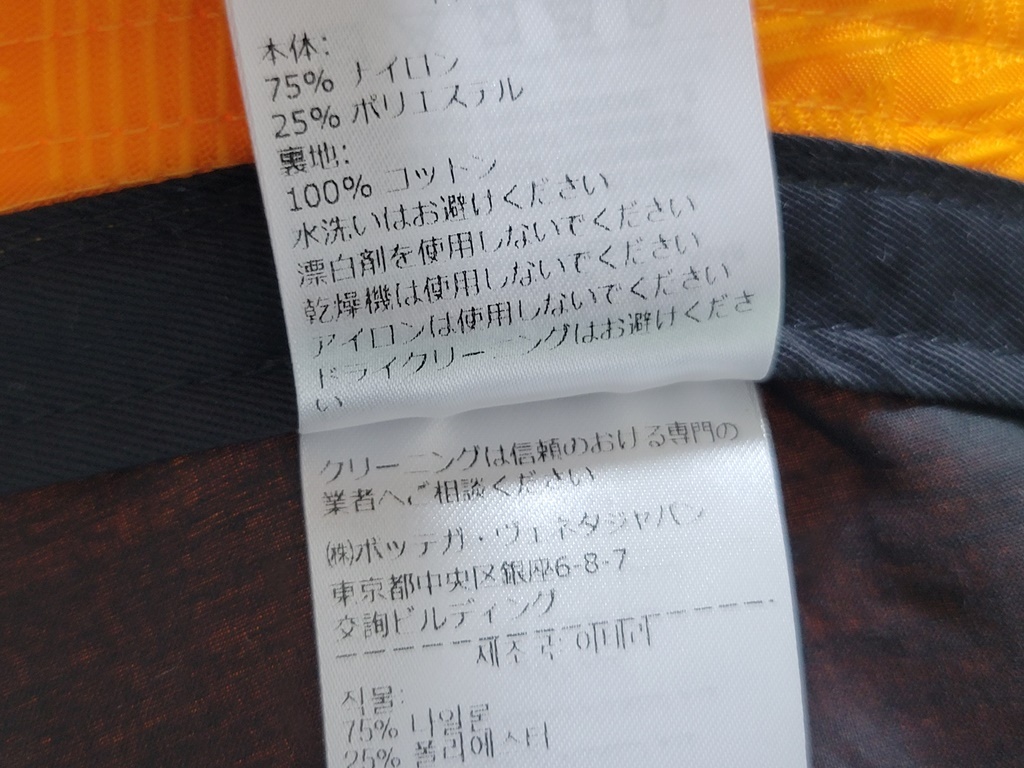 本体:
75% ナイロン
25% ポリエステル
裏地:
100% コットン
水洗いはお避けください
漂白剤を使用しないでください
乾燥機は使用しないでください
アイロンは使用しないでください
ドライクリーニングはお避けくださ
い
クリーニングは信頼のおける専門の
業者へご相談ください
㈱ボッテガ・ヴェネタジャパン
東京都中央区銀座6-8-7
交詢ビルディング
제조국: 이태리
직물:
75% 나일론
25% 폴리에스터